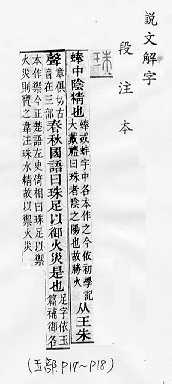 說文解字
段注本
珠
蜯中陰精也
蜯或蚌字中各本作之今依初學記
大戴禮曰珠者陰之陽也故勝火
从王朱
聲
章俱切古
音在三部
春秋國語曰珠足以御火災是也
足字依玉
篇補御各
本作禦今正楚語左史倚相曰珠足以禦
火災則寶之韋注珠水精故以禦火災
(玉部 P17~P18)